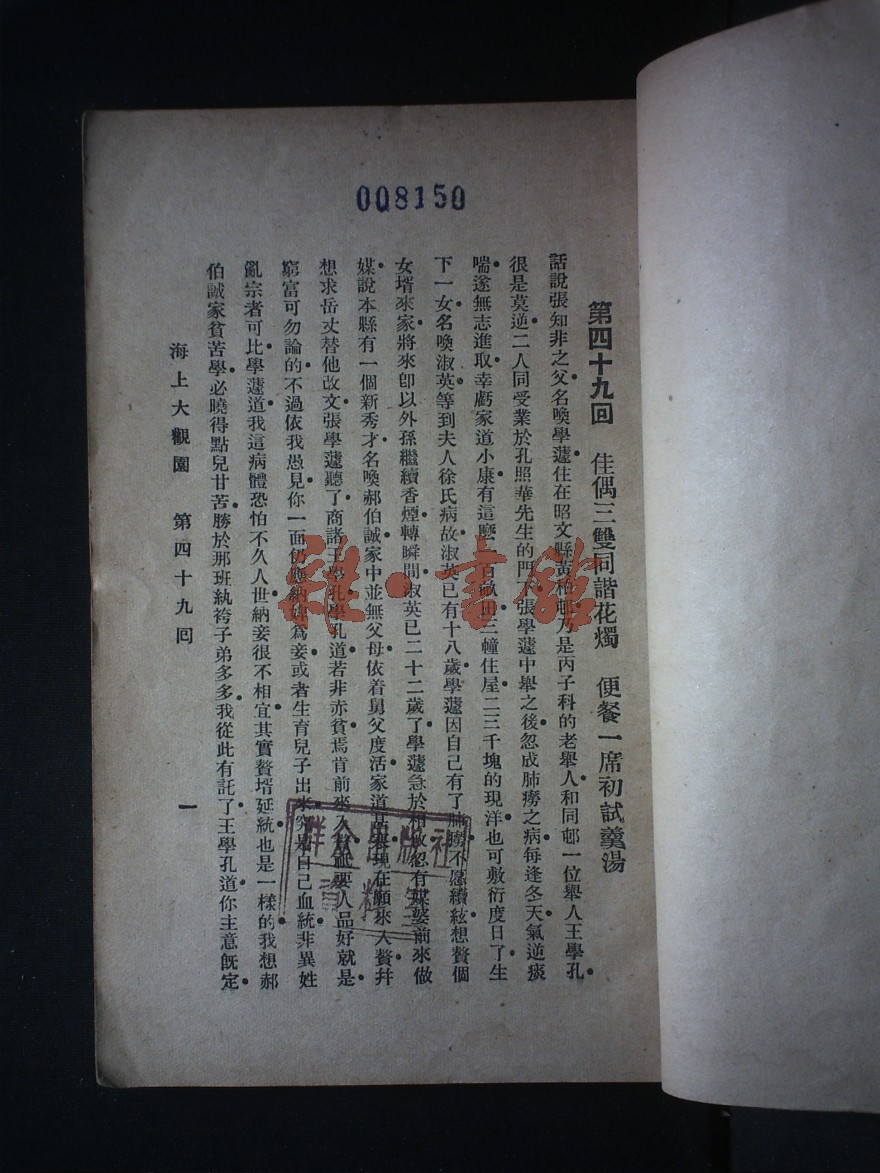 008150
第四十九回　佳偶三雙同諧花燭　便餐一席初試羹湯
話說張知非之父名喚學蘧住在昭文縣黃柏邨乃是丙子科的老舉人和同邨一位舉人王學孔
很是莫逆二人同受業於孔照華先生的門下張學蘧中舉之後忽成肺癆之病每逢冬天氣逆痰
喘遂無志進取幸虧家道小康有這麼一百畝田三幢住屋二三千塊的現洋也可敷衍度日了生
下一女名喚淑英等到夫人徐氏病故淑英已有十八歲學蘧因自己有了肺癆不愿續絃想贅個
女壻來家將來卽以外孫繼續香煙轉瞬間淑英已二十二歲了學蘧急於相攸忽有媒婆前來做
媒說本縣有一個新秀才名喚郝伯誠家中並無父母依着舅父度活家道現在願來入贅幷
想求岳丈替他改文張學蘧聽了商諸王學孔學孔道若非赤貧焉肯前來入贅祇要人品好就是
窮富可勿論的不過依我愚見你一面仍應納婢爲妾或者生育兒子出來究是自己血統非異姓
亂宗者可比學蘧道我這病體恐怕不久人世納妾很不相宜其實贅壻延統也是一樣的我想郝
伯誠家貧苦學必曉得點兒甘苦勝於那班紈袴子弟多多我從此有託了王學孔道你主意旣定
海上大觀園　第四十九回
一
雜·書館
群众出版社
資料室